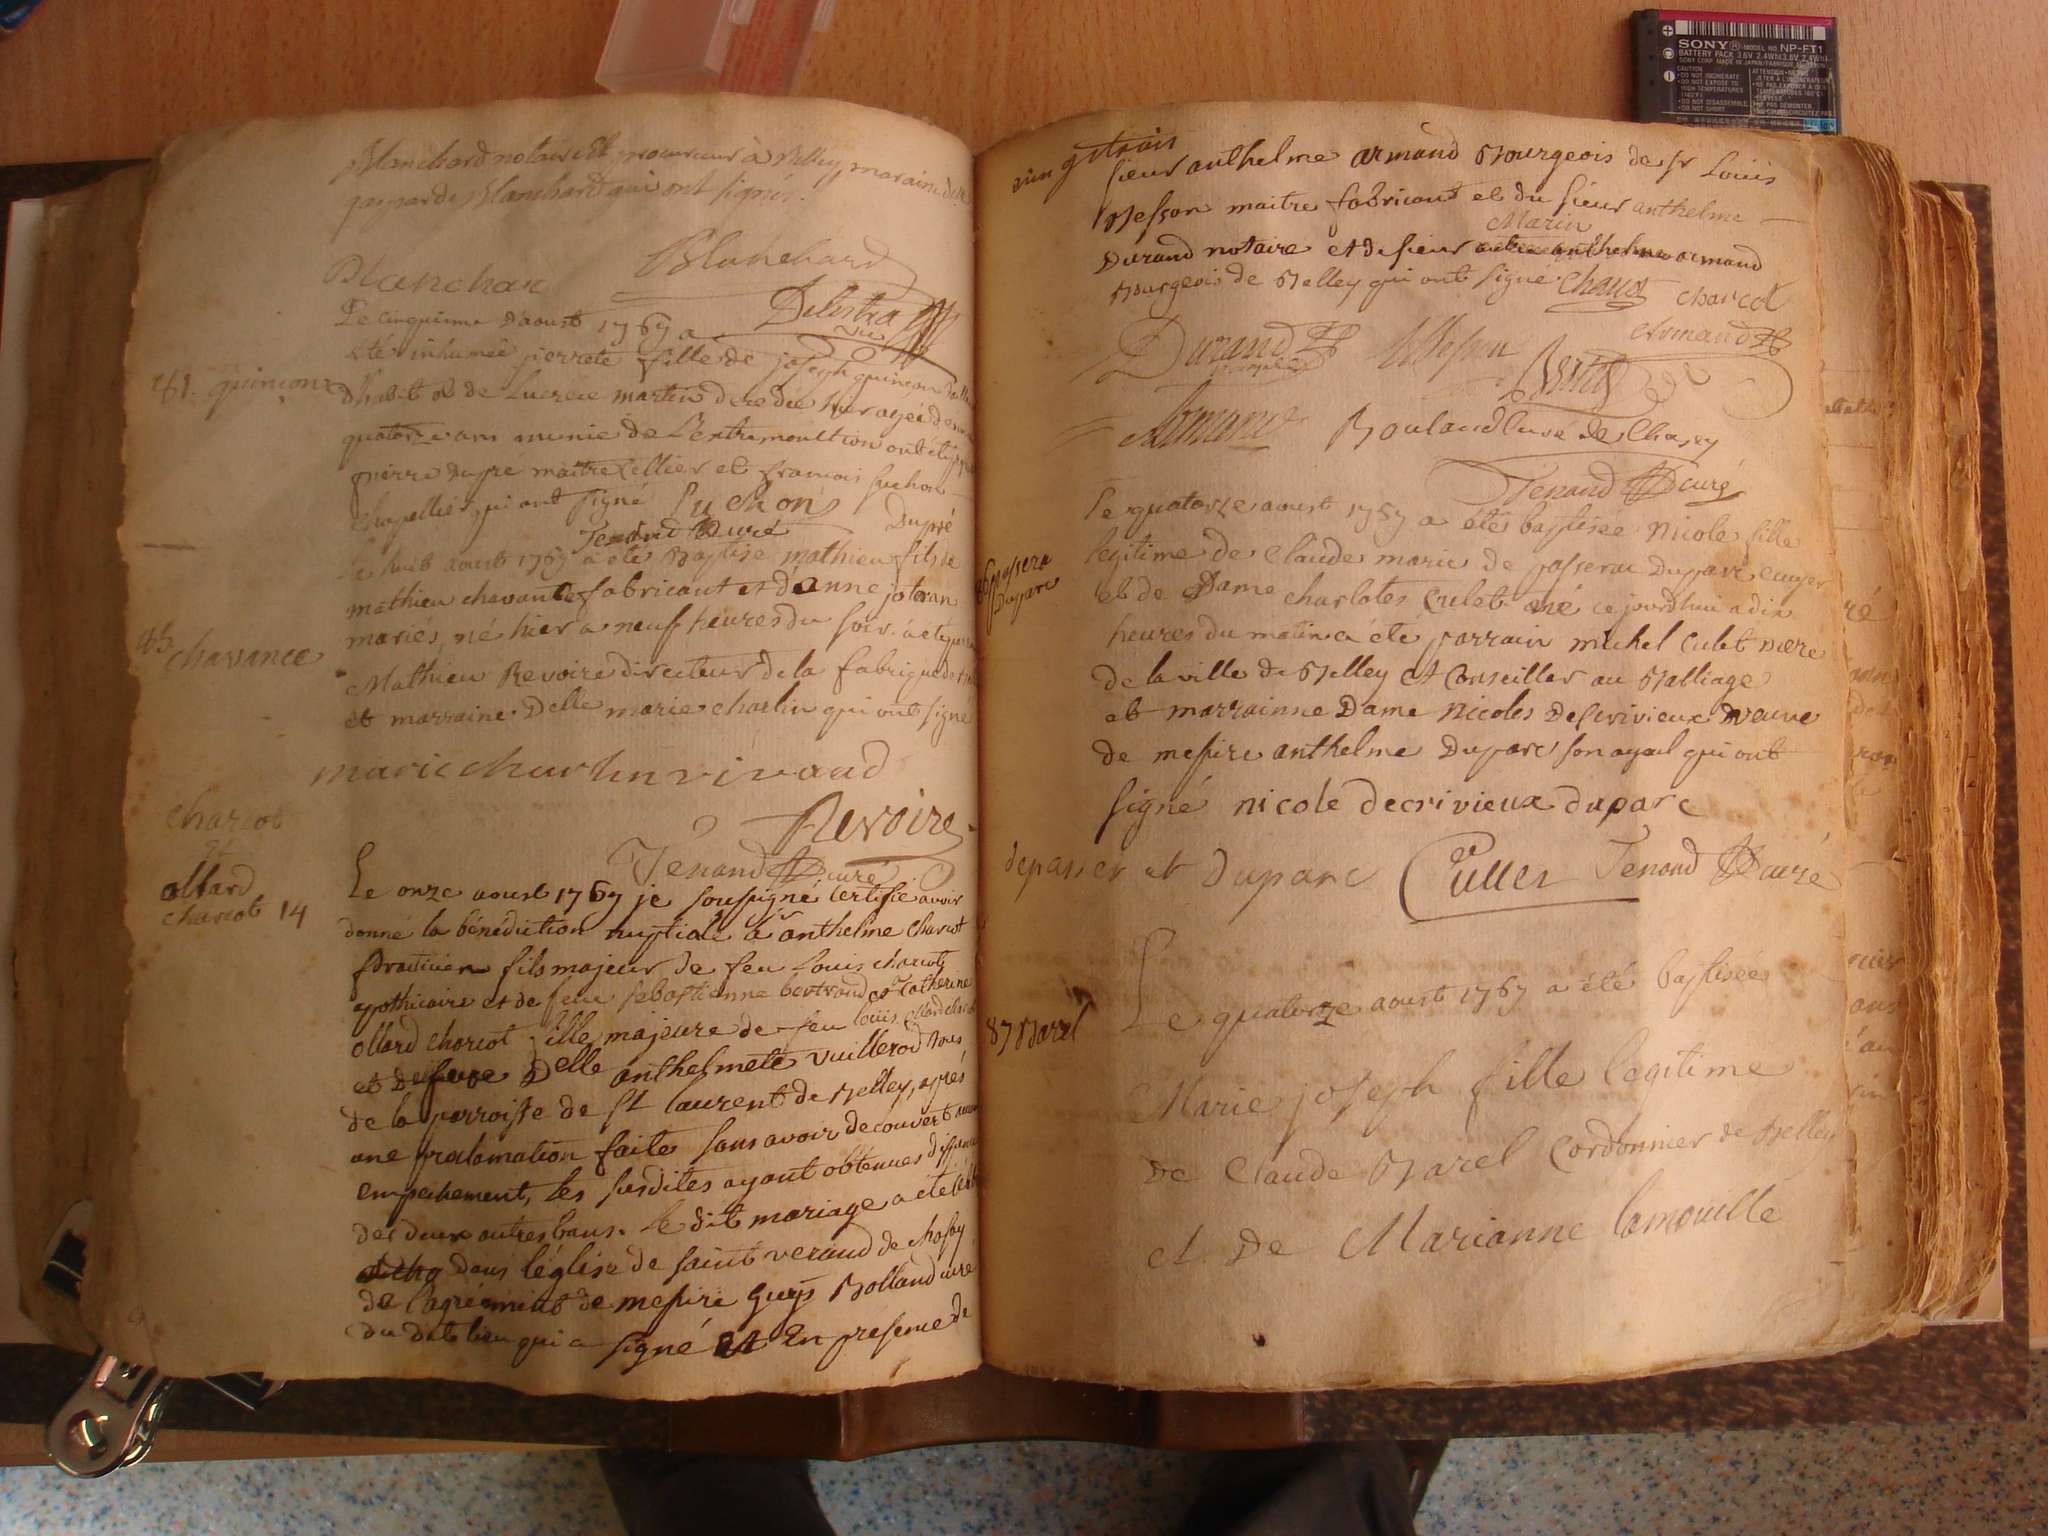 Blanchard notaire et procureur à Belley maraine dlle
gasparde Blanchard qui ont signés.
Blanchar
Blanchard
Delestra
Le cinquieme d'aoust 1767 a
été inhumée pierrete fille de joseph quinçon
61 quinçon
dhabit et de Lucrece martin decedée hier agée denviron
quatorze ans munie de L'extremonction ont été
pierre Dupré maitre sellier et francois suchon
chapellier qui ont signé Suchon Dupré
Tenand Curé
le huit aoust 1767 a été Baptisé mathieu fils de
mathieu chavance fabricant et d'anne joteran
mariés, né hier a neuf heures du soir. a été parrain
85 chavance
Mathieu Revoire directeur de la fabrique de
et marraine Delle marie charlin qui ont signé
marie charlin rivaud
Revoire
Tenand Curé
charcot
et
ollard
charcot 14
Le onze aoust 1767 je soussigné certifie avoir
donné la bénédiction nuptiale à sr anthelme charcot
praticien fils majeur de feu Louis charcot
apothicaire et de feue sebastienne bertrand et Catherine
ollard charcot fille majeure de feu louis ollard charcot
et de feue Delle anthelmete vuillerod tous
de la parroisse de St laurent de Belley, après
une proclamation faites sans avoir decouvert aucun
empechement, les susdites ayant obtenues dispense
des deux autres bans. le dit mariage a été
dans léglise de saint verand de chasey
de l'agrément de messire Guy Bolland curé
du dit lieu qui a signé et En présence de
sieur anthelme armand Bourgeois de sr Louis
Besson maitre fabricant et du sieur anthelme
Marin
Durand notaire et de sieur autre anthelme armand
Bourgeois de Belley qui ont signé charcot charcot
Durand
Besson
Armand
Armand
Boulaud Curé de Chasey
Tenand Curé
Le quatorze aoust 1767 a étés baptisée Nicole fille
legitime de Claude marie de passerat Duparc ecuyer
86 passera
Duparc
et de Dame charlotes Culet né ce jourdhui a dix
heures du matin a été parrain michel culet mere
de la ville de Belley et Conseiller au Balliage
et marrainne Dame Nicoles Descrivieux veuve
de messire anthelme Duparc son ayeul qui ont
signé nicole decrivieux duparc
depasser et Duparc Cullet Tenand Curé
Le quatorze aoust 1767 a été baptisée
87 Barel
Marie joseph fille legitime
de Claude Barel Cordonnier de Belley
et De Marianne lamouille
SONY MODEL NO. NP-FT1
BATTERY PACK 3.6V 2.4Wh